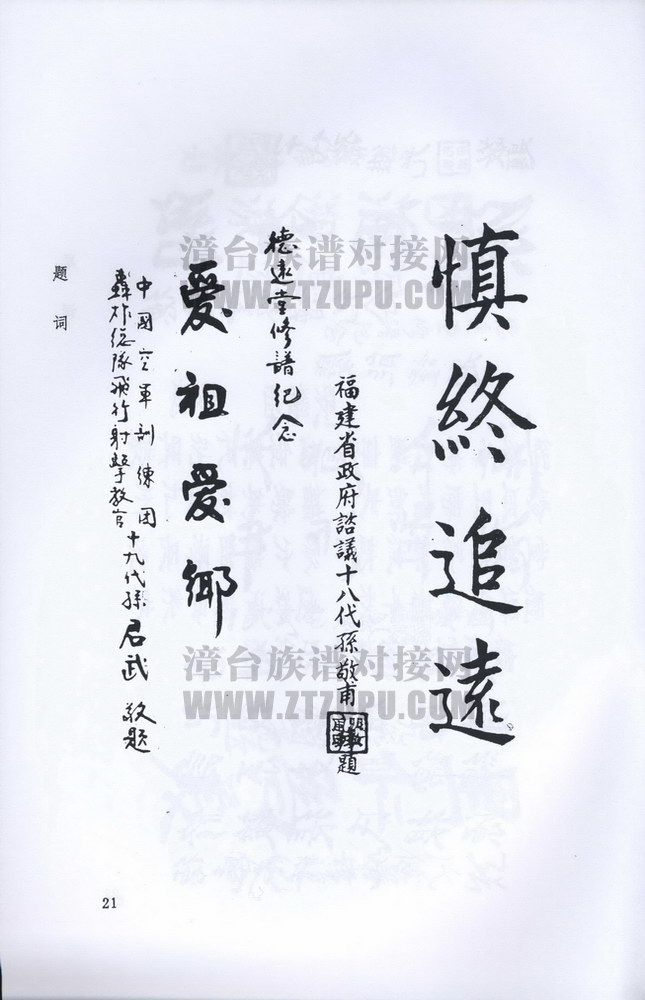 慎終追遠
福建省政府諮議十八代孫敬甫題
德遠堂修譜紀念
愛祖愛鄉
中國空軍訓練团
轟炸総隊飛行射擊教官十九代孫君武敬題
题词
漳台族谱对接网
WWW.ZTZUPU.COM
漳台族谱对接网
WWW.ZTZUPU.COM
21